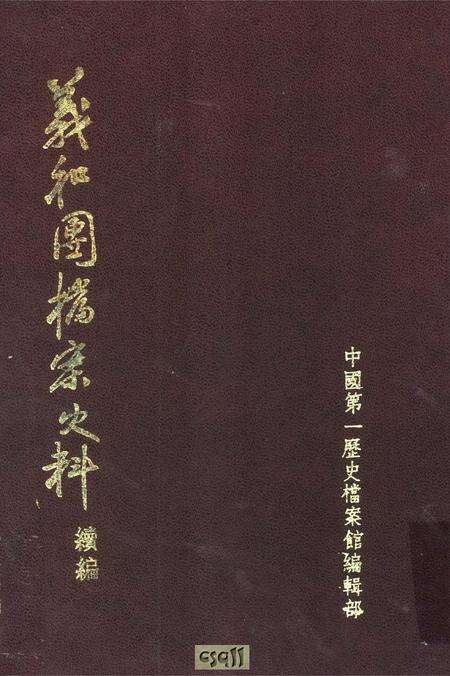 義和團檔案史料
續編
中國第一歷史檔案館編輯部
csqll